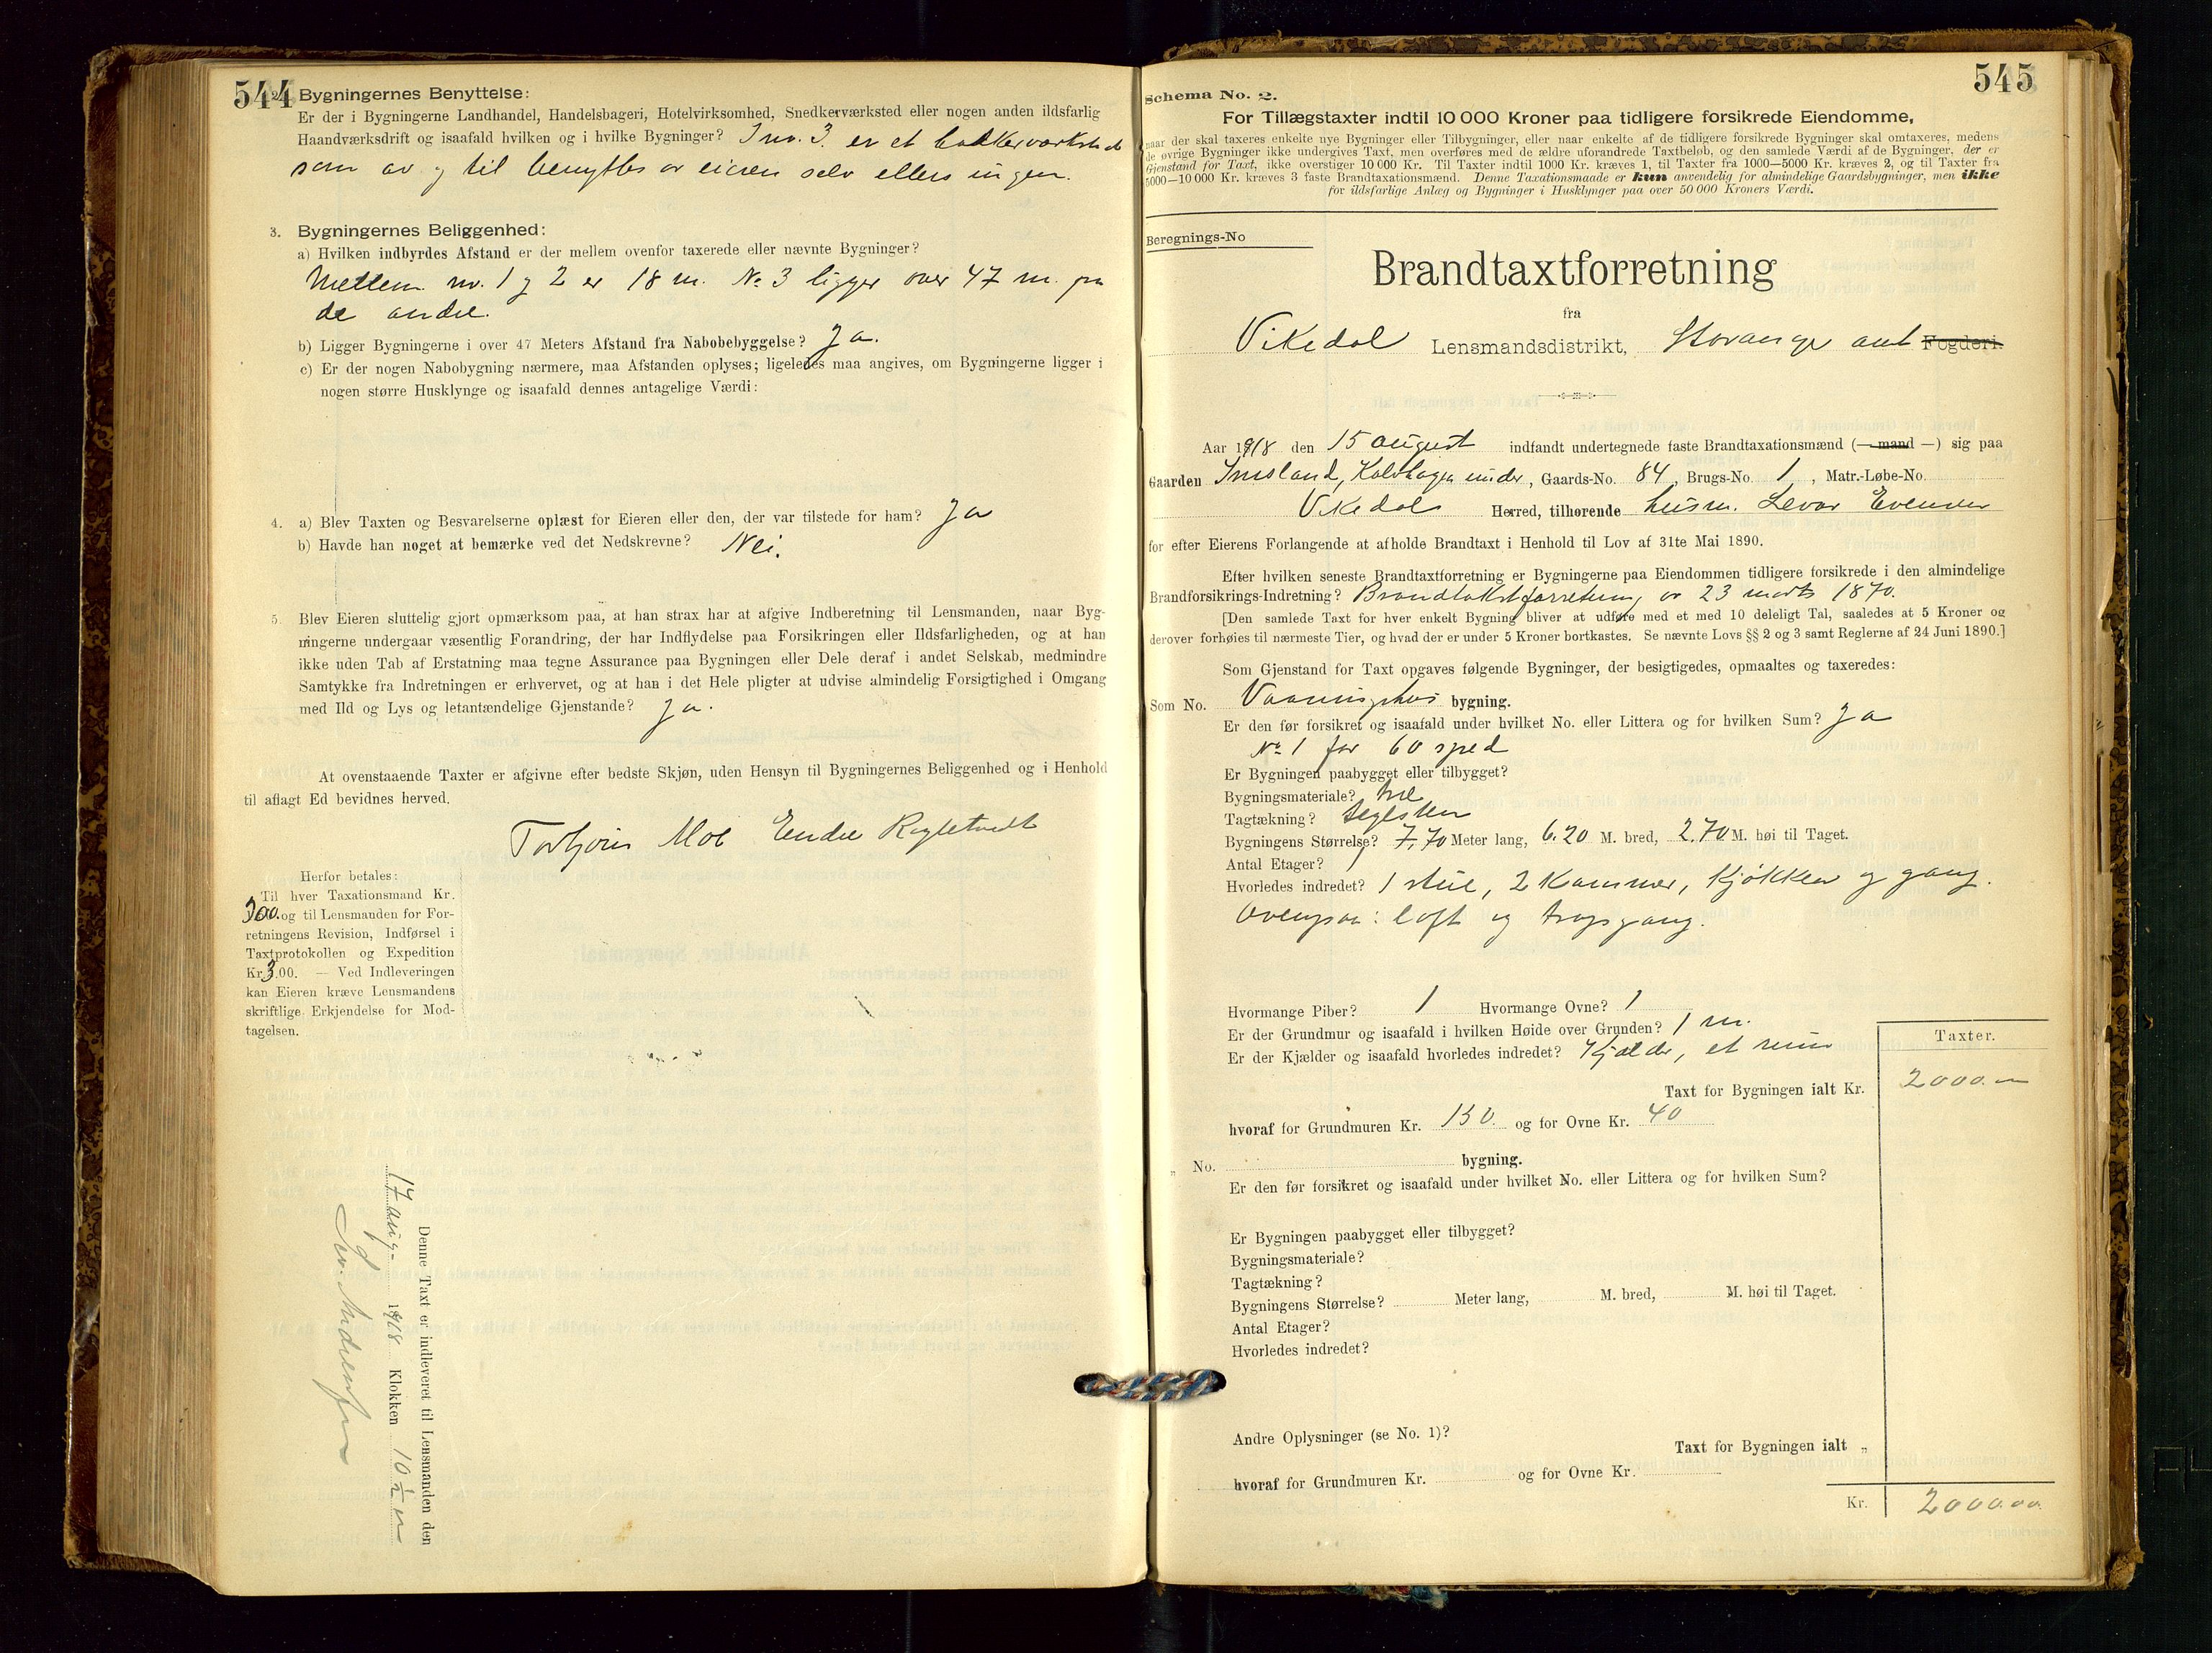 544
2. Bygningernes Benyttelse:
Er der i Bygningerne Landhandel, Handelsbageri, Hotelvirksomhed, Snedkerværksted eller nogen anden ildsfarlig
Haandværksdrift og isaafald hvilken og i hvilke Bygninger? I nr. 3. er et
som av og til benyttes av eieren selv ellers ingen.
3. Bygningernes Beliggenhed:
a) Hvilken indbyrdes Afstand er der mellem ovenfor taxerede eller nævnte Bygninger?
Mellem nr. 1 og 2 er 18 m. No 3 ligger over 47 m. fra
de andre.
b) Ligger Bygningerne i over 47 Meters Afstand fra Nabobebyggelse? Ja.
c) Er der nogen Nabobygning nærmere, maa Afstanden oplyses; ligeledes maa angives, om Bygningerne ligger i
nogen større Husklynge og isaafald dennes antagelige Værdi:
4. a) Blev Taxten og Besvarelserne oplæst for Eieren eller den, der var tilstede for ham? Ja
b) Havde han noget at bemærke ved det Nedskrevne? Nei.
5. Blev Eieren sluttelig gjort opmærksom paa, at han strax har at afgive Indberetning til Lensmanden, naar Byg-
ningerne undergaar væsentlig Forandring, der har Indflydelse paa Forsikringen eller Ildsfarligheden, og at han
ikke uden Tab af Erstatning maa tegne Assurance paa Bygningen eller Dele deraf i andet Selskab, medmindre
Samtykke fra Indretningen er erhvervet, og at han i det Hele pligter at udvise almindelig Forsigtighed i Omgang
med Ild og Lys og letantændelige Gjenstande? Ja.
At ovenstaaende Taxter er afgivne efter bedste Skjøn, uden Hensyn til Bygningernes Beliggenhed og i Henhold
til aflagt Ed bevidnes herved.
Torbjørn Moe Endre
Herfor betales:
Til hver Taxationsmand Kr.
3.00. og til Lensmanden for For-
retningens Revision, Indførsel i
Taxtprotokollen og Expedition
Kr. 3.00. — Ved Indleveringen
kan Eieren kræve Lensmandens
skriftlige Erkjendelse for Mod-
tagelsen.
Denne Taxt er indleveret til Lensmanden den
17 aug. 1918 Klokken 10 ½
545
Schema No. 2.
For Tillægstaxter indtil 10 000 Kroner paa tidligere forsikrede Eiendomme,
naar der skal taxeres enkelte nye Bygninger eller Tilbygninger, eller naar enkelte af de tidligere forsikrede Bygninger skal omtaxeres, medens
de øvrige Bygninger ikke undergives Taxt, men overføres med de ældre uforandrede Taxtbeløb, og den samlede Værdi af de Bygninger, der er
Gjenstand for Taxt, ikke overstiger 10 000 Kr. Til Taxter indtil 1000 Kr. kræves 1, til Taxter fra 1000—5000 Kr. kræves 2, og til Taxter fra
5000—10 000 Kr. kræves 3 faste Brandtaxationsmænd. Denne Taxationsmaade er kun anvendelig for almindelige Gaardsbygninger, men ikke
for ildsfarlige Anlæg og Bygninger i Husklynger paa over 50 000 Kroners Værdi.
Beregnings-No
Brandtaxtforretning
fra
Vikedal Lensmandsdistrikt, Stavanger amt Fogderi.
Aar 1918 den 15 august indfandt undertegnede faste Brandtaxationsmænd (— mand —) sig paa
Gaarden Imsland, Kalvhagen under, Gaards-No. 84, Brugs-No. 1, Matr.-Løbe-No.
Vikedal Herred, tilhørende husm. Evensen
for efter Eierens Forlangende at afholde Brandtaxt i Henhold til Lov af 31te Mai 1890.
Efter hvilken seneste Brandtaxtforretning er Bygningerne paa Eiendommen tidligere forsikrede i den almindelige
Brandforsikrings-Indretning? Brandtakstforretning av 23 marts 1870.
[Den samlede Taxt for hver enkelt Bygning bliver at udføre med et med 10 deleligt Tal, saaledes at 5 Kroner og
derover forhøies til nærmeste Tier, og hvad der er under 5 Kroner bortkastes. Se nævnte Lovs §§ 2 og 3 samt Reglerne af 24 Juni 1890.]
Som Gjenstand for Taxt opgaves følgende Bygninger, der besigtigedes, opmaaltes og taxeredes:
Som No. Vaaningshus bygning.
Er den før forsikret og isaafald under hvilket No. eller Littera og for hvilken Sum? Ja
No 1 for 60 spd
Er Bygningen paabygget eller tilbygget?
Bygningsmateriale? træ
Tagtækning? teglsten
Bygningens Størrelse? 7,70 Meter lang, 6.20 M. bred, 2.70 M. høi til Taget.
Antal Etager? 1
Hvorledes indredet? 1 stue, 2 kammer, kjøkken og gang.
Ovenpaa: loft og trapgang.
Hvormange Piber? 1 Hvormange Ovne? 1
Er der Grundmur og isaafald i hvilken Høide over Grunden? 1 m.
Er der Kjælder og isaafald hvorledes indredet? Kjælder, et rum
Taxter.
Taxt for Bygningen ialt Kr. 2000.
hvoraf for Grundmuren Kr. 150. og for Ovne Kr. 40
„ No. bygning.
Er den før forsikret og isaafald under hvilket No. eller Littera og for hvilken Sum?
Er Bygningen paabygget eller tilbygget?
Bygningsmateriale?
Tagtækning?
Bygningens Størrelse? Meter lang, M. bred, M. høi til Taget.
Antal Etager?
Hvorledes indredet?
Andre Oplysninger (se No. 1)?
Taxt for Bygningen ialt „
hvoraf for Grundmuren Kr. og for Ovne Kr.
Kr. 2000.00.